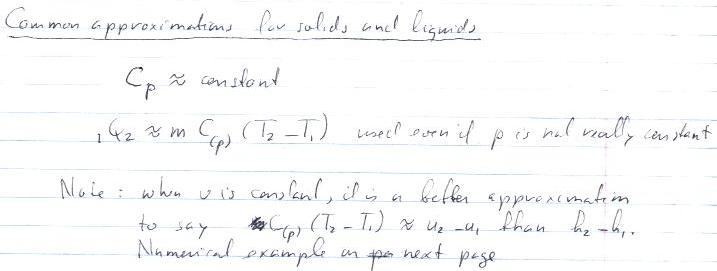 Common approximations for solids and liquids
Cp ≈ constant
₁Q₂ ≈ m C(p) (T₂ – T₁) used even if p is not really constant
Note : when v is constant, it is a better approximation
to say C(p) (T₂ – T₁) ≈ u₂ – u₁ than h₂ – h₁.
Numerical example on next page